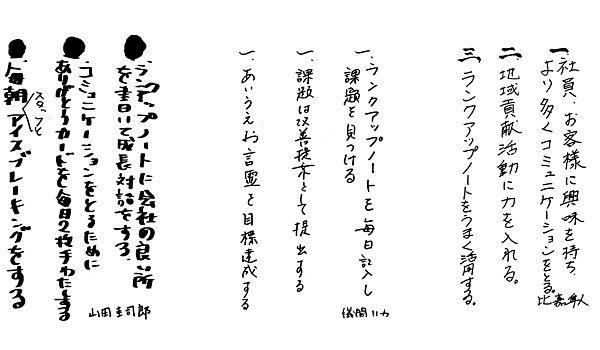 一、社員、お客様に興味を持ち、
より多くコミュニケーションをとる。
二、地域貢献活動に力を入れる。
三、ランクアップノートをうまく活用する。
比嘉隼人
一、ランクアップノートを毎日記入し
課題を見つける
一、課題は改善提案として提出する
一、あいうえお言霊で目標達成する
儀間リカ
●ランクアップノートに会社の良い所
を書いて成長対話をする。
●コミュニケーションをとるために
ありがとうカードを毎日2枚手わたしする
●毎朝アイスブレーキングをする
山田圭司郎